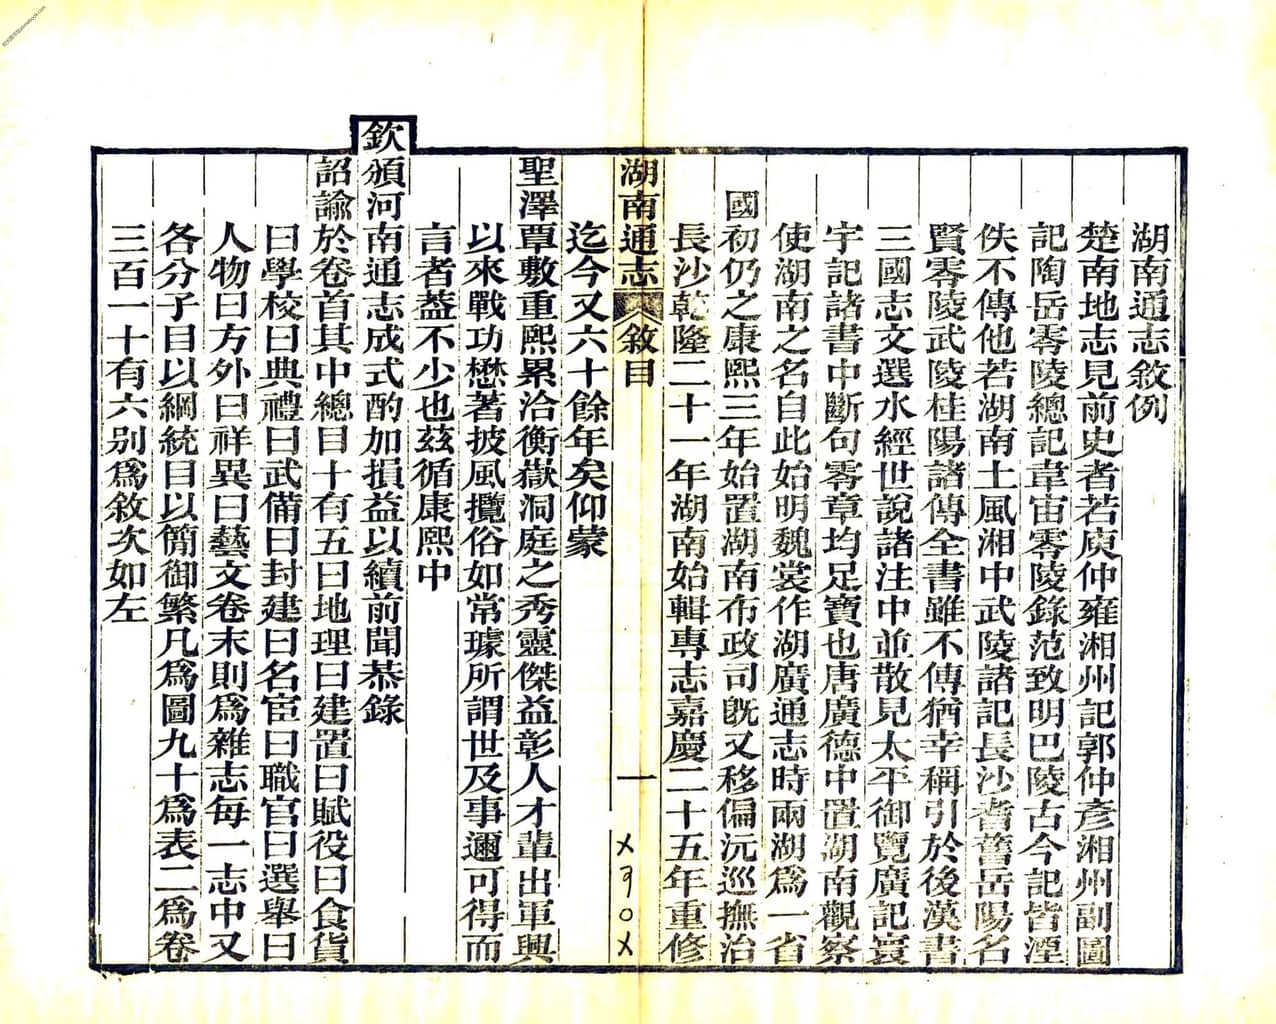 湖南通志敘例
楚南地志見前史者若庾仲雍湘州記郭仲彥湘州副圖
記陶岳零陵總記韋宙零陵錄范致明巴陵古今記皆湮
佚不傳他若湖南土風湘中武陵諸記長沙耆舊岳陽名
賢零陵武陵桂陽諸傳全書雖不傳猶幸稱引於後漢書
三國志文選水經世說諸注中並散見太平御覽廣記寰
宇記諸書中斷句零章均足寶也唐廣德中置湖南觀察
使湖南之名自此始明魏裳作湖廣通志時兩湖爲一省
國初仍之康熙三年始置湖南布政司旣又移偏沅巡撫治
長沙乾隆二十一年湖南始輯專志嘉慶二十五年重修
湖南通志 敘目 一
迄今又六十餘年矣仰蒙
聖澤覃敷重熙累洽衡嶽洞庭之秀靈傑益彰人才輩出軍興
以來戰功懋著披風攬俗如常璩所謂世及事邇可得而
言者葢不少也茲循康熙中
欽頒河南通志成式酌加損益以續前聞恭錄
詔諭於卷首其中總目十有五曰地理曰建置曰賦役曰食貨
曰學校曰典禮曰武備曰封建曰名宦曰職官曰選舉曰
人物曰方外曰祥異曰藝文卷末則爲雜志每一志中又
各分子目以綱統目以簡御繁凡爲圖九十爲表二爲卷
三百一十有六别爲敘次如左